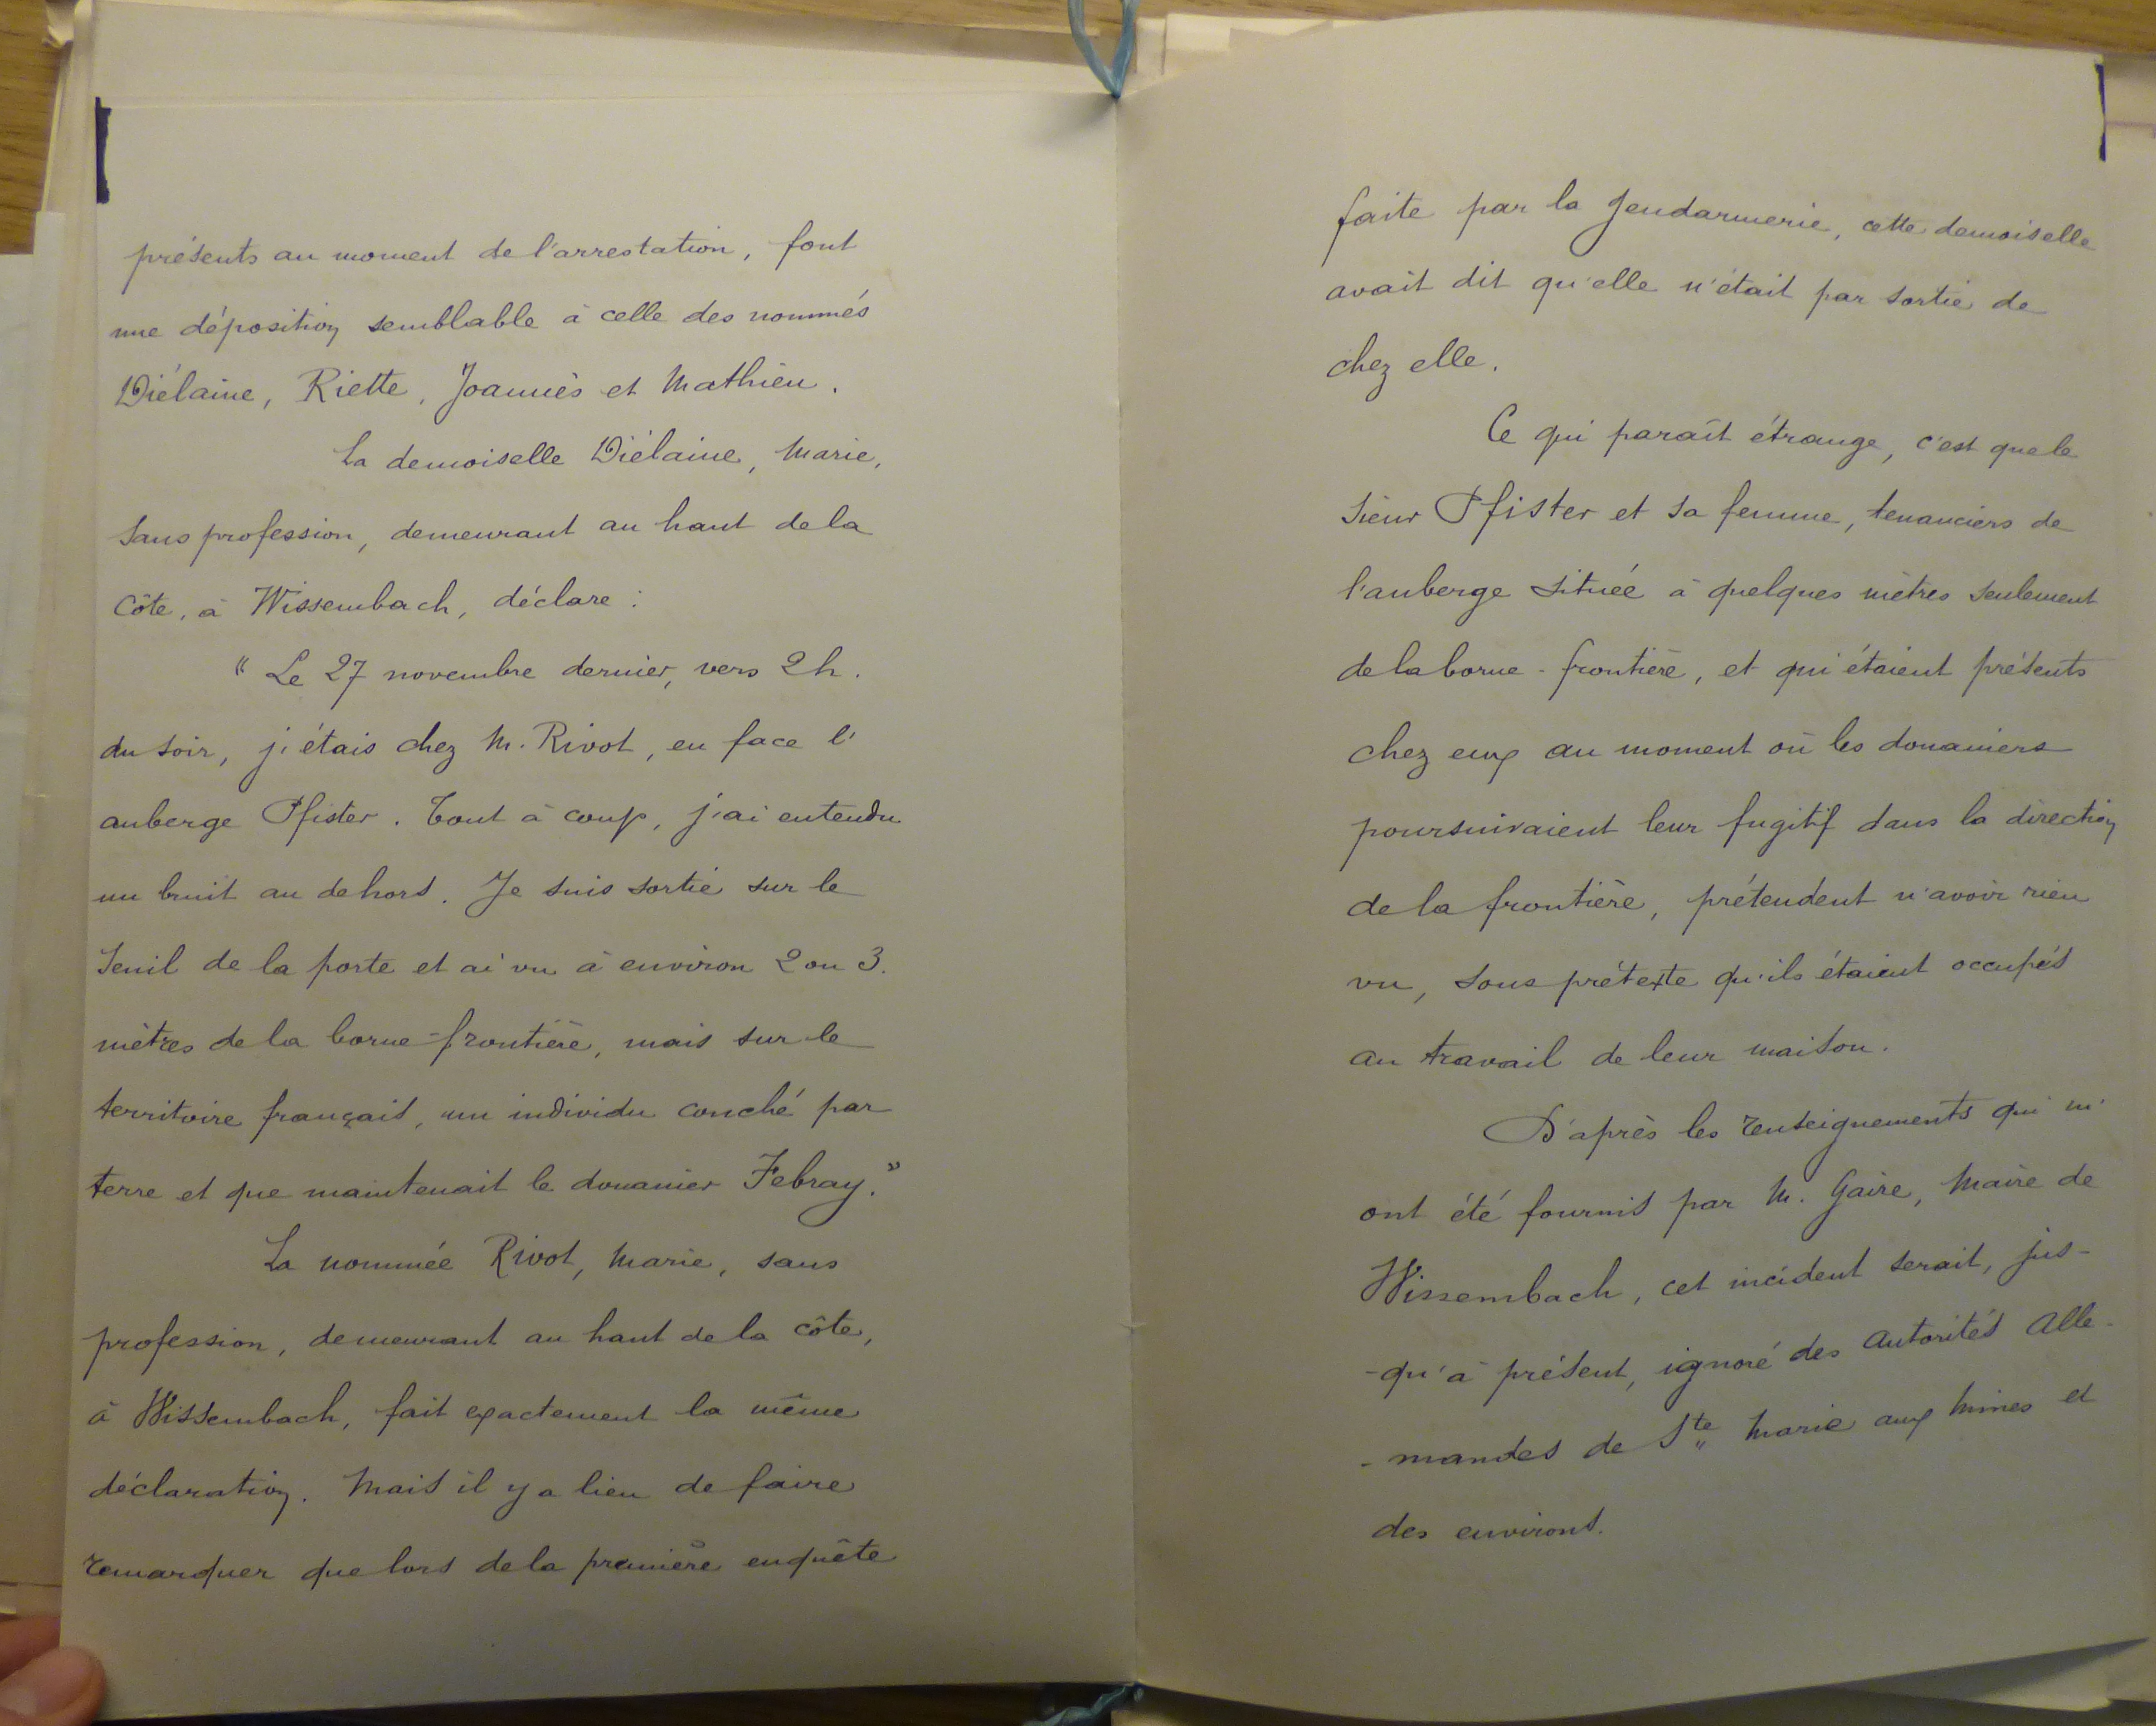 présents au moment de l'arrestation, font
une déposition semblable à celle des nommés
Diélaine, Riette, Joannès et Mathieu.
La demoiselle Diélaine, Marie,
sans profession, demeurant au haut de la
Côte, à Wissembach, déclare :
" Le 27 novembre dernier, vers 2 h.
du soir, j'étais chez M. Rivot, en face l'
auberge Pfister. Tout à coup, j'ai entendu
un bruit au dehors. Je suis sortie sur le
seuil de la porte et ai vu à environ 2 ou 3.
mètres de la borne-frontière, mais sur le
territoire français, un individu couché par
terre et que maintenait le douanier Febray."
La nommée Rivot, Marie, sans
profession, demeurant au haut de la côte,
à Wissembach, fait exactement la même
déclaration. Mais il y a lieu de faire
remarquer que lors de la première enquête
faite par la Gendarmerie, cette demoiselle
avait dit qu'elle n'était par sortie de
chez elle.
Ce qui paraît étrange, c'est que le
sieur Pfister et sa femme, tenanciers de
l'auberge située à quelques mètres seulement
de la borne-frontière, et qui étaient présents
chez eux au moment où les douaniers
poursuivaient leur fugitif dans la direction
de la frontière, prétendent n'avoir rien
vu, sous prétexte qu'ils étaient occupés
au travail de leur maison.
D'après les renseignements qui m'
ont été fournis par M. Gaire, Maire de
Wissembach, cet incident serait, jus-
-qu'à présent, ignoré des Autorités Alle-
-mandes de Ste Marie aux Mines et
des environs.